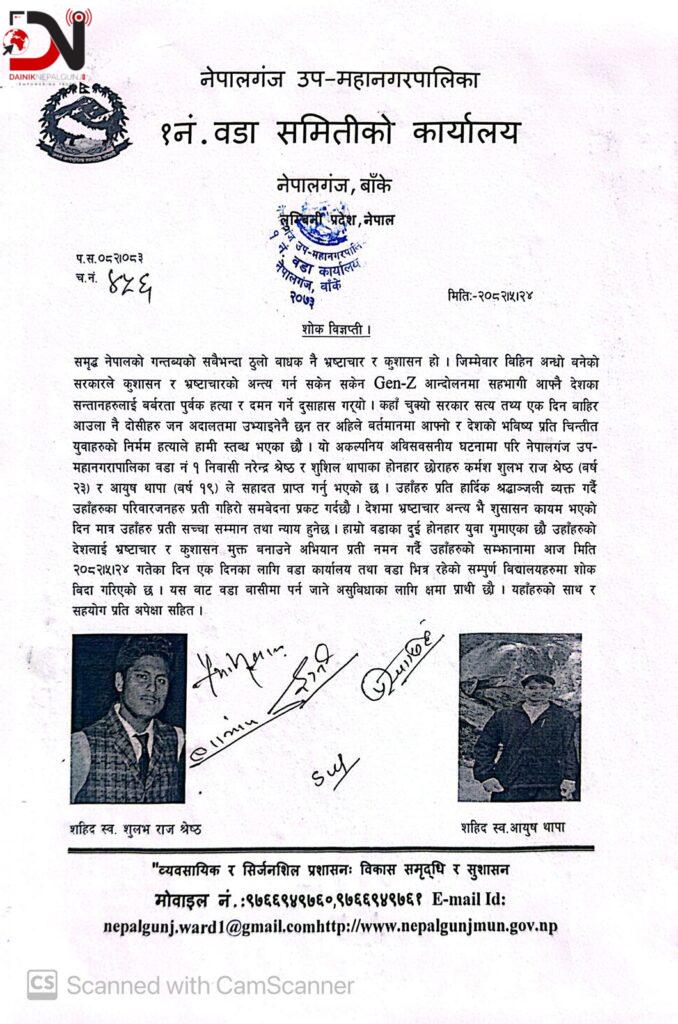 DN
DAINIKNEPALGUNJ
नेपालगंज उप-महानगरपालिका
१नं.वडा समितीको कार्यालय
नेपालगंज,बाँके
लुम्बिनी प्रदेश,नेपाल
नेपालगंज उप-महानगरपालिका
१ नं. वडा कार्यालय
नेपालगंज, बाँके
२०७३
प.स.०८२।०८३
च.नं. ४५६
मिति:-२०८२।५।२४
शोक विज्ञप्ती ।
समृद्ध नेपालको गन्तब्यको सबैभन्दा ठुलो बाधक नै भ्रष्टाचार र कुशासन हो । जिम्मेवार बिहिन अन्धो बनेको
सरकारले कुशासन र भ्रष्टाचारको अन्त्य गर्न सकेन सकेन Gen-Z आन्दोलनमा सहभागी आफ्नै देशका
सन्तानहरुलाई बर्बरता पुर्वक हत्या र दमन गर्ने दुसाहास गर्‍यो । कहाँ चुक्यो सरकार सत्य तथ्य एक दिन बाहिर
आउला नै दोसीहरु जन अदालतमा उभ्याइनेनै छन तर अहिले वर्तमानमा आफ्नो र देशको भबिष्य प्रति चिन्तीत
युवाहरुको निर्मम हत्याले हामी स्तब्ध भएको छौ । यो अकल्पनिय अविसवसनीय घटनामा परि नेपालगंज उप-
महानगरपालिका वडा नं १ निवासी नरेन्द्र श्रेष्ठ र शुशिल थापाका होनहार छोराहरु कर्मश शुलभ राज श्रेष्ठ (बर्ष
२३) र आयुष थापा (बर्ष १९) ले सहादत प्राप्त गर्नु भएको छ । उहाँहरु प्रति हार्दिक श्रद्धाञ्जली ब्यक्त गर्दै
उहाँहरुका परिवारजनहरु प्रती गहिरो समवेदना प्रकट गर्दछौ । देशमा भ्रष्टाचार अन्त्य भै शुसासन कायम भएको
दिन मात्र उहाँहरु प्रती सच्चा सम्मान तथा न्याय हुनेछ । हाम्रो वडाका दुई होनहार युवा गुमाएका छौ उहाँहरुको
देशलाई भ्रष्टाचार र कुशासन मुक्त बनाउने अभियान प्रती नमन गर्दै उहाँहरुको सम्भानामा आज मिति
२०८२।५।२४ गतेका दिन एक दिनका लागि वडा कार्यालय तथा वडा भित्र रहेको सम्पुर्ण विद्यालयहरुमा शोक
बिदा गरिएको छ । यस बाट वडा बासीमा पर्न जाने असुविधाका लागि क्षमा प्राथी छौ । यहाँहरुको साथ र
सहयोग प्रति अपेक्षा सहित ।
शहिद स्व. शुलभ राज श्रेष्ठ
शहिद स्व.आयुष थापा
"व्यवसायिक र सिर्जनशिल प्रशासनः विकास समृद्धि र सुशासन
मोवाइल नं.:९७६६९४९७६०,९७६६९४९७६१ E-mail Id:
nepalgunj.ward1@gmail.comhttp://www.nepalgunjmun.gov.np
CS Scanned with CamScanner